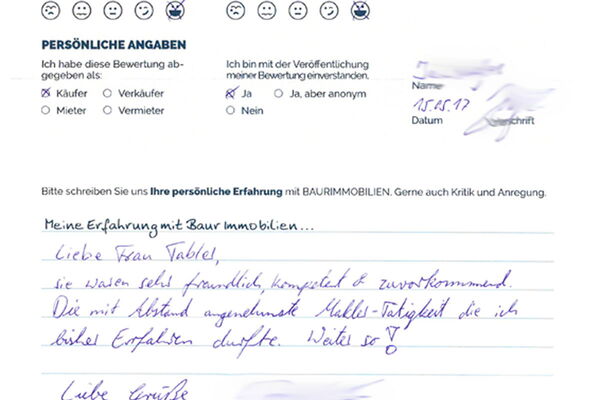 PERSÖNLICHE ANGABEN
Ich habe diese Bewertung ab-
gegeben als:
Käufer Verkäufer
Mieter Vermieter
Ich bin mit der Veröffentlichung
meiner Bewertung einverstanden.
Ja Ja, aber anonym
Nein
Name
15.05.17
Datum
Bitte schreiben Sie uns Ihre persönliche Erfahrung mit BAURIMMOBILIEN. Gerne auch Kritik und Anregung.
Meine Erfahrung mit Baur Immobilien...
Liebe Frau Tables,
sie waren sehr freundlich, kompetent & zuvorkommend.
Die mit Abstand angenehmste Makler-Tätigkeit die ich
bisher Erfahren durfte. Weiter so!
Liebe Grüße